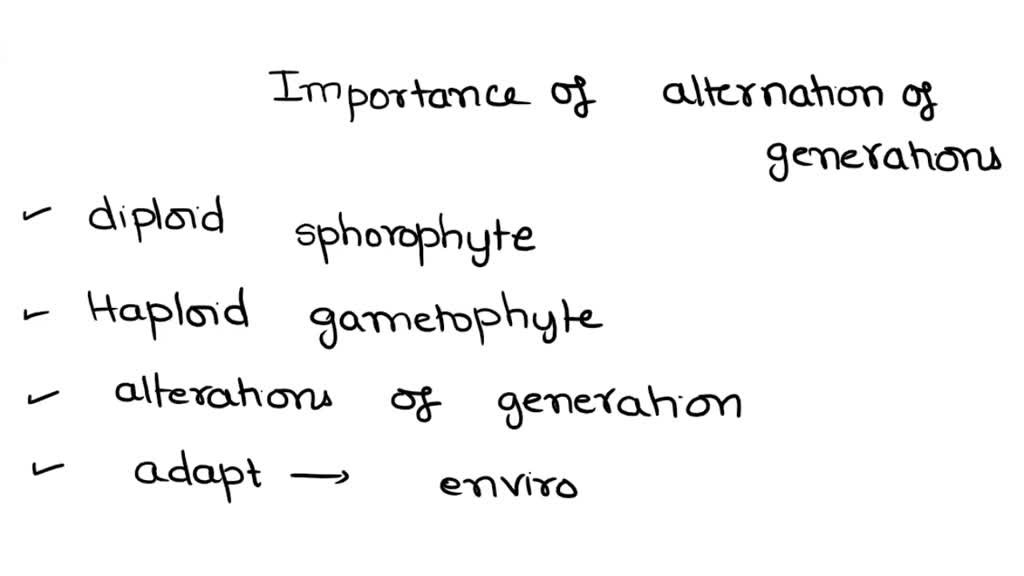 Importance of alternation of
generations
✓ diploid sphorophyte
✓ Haploid gametophyte
✓ alterations of generation
✓ adapt → enviro